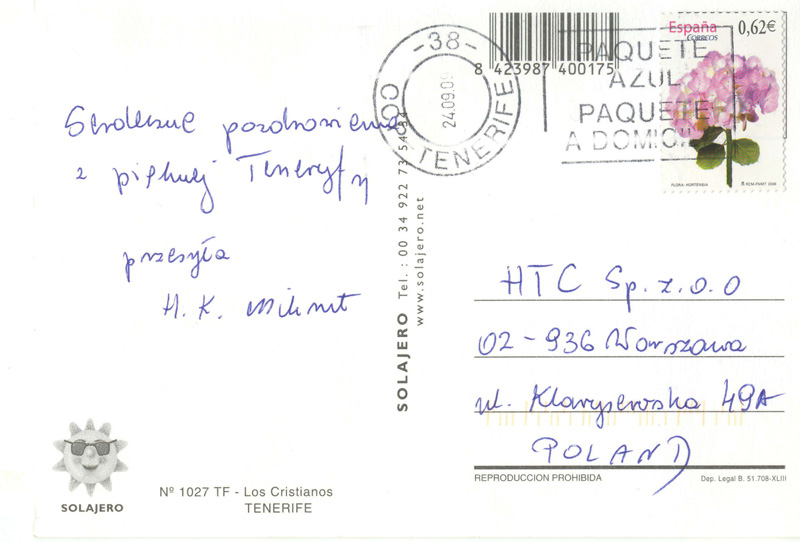 Serdeczne pozdrowienia
z pięknej Teneryfy
przesyła
H. K.
SOLAJERO
Nº 1027 TF - Los Cristianos
TENERIFE
SOLAJERO Tel.: 00 34 922 73 54 54
www.solajero.net
8 423987 400175
-38-
24.09.09
TENERIFE
PAQUETE
AZUL
PAQUETE
A DOMICI
España 0,62€
CORREOS
FLORA - HORTENSIA
HTC Sp. z.o.o
02-936 Warszawa
ul. Klaryserwska 49A
POLAND
REPRODUCCION PROHIBIDA
Dep. Legal B. 51.708-XLIII